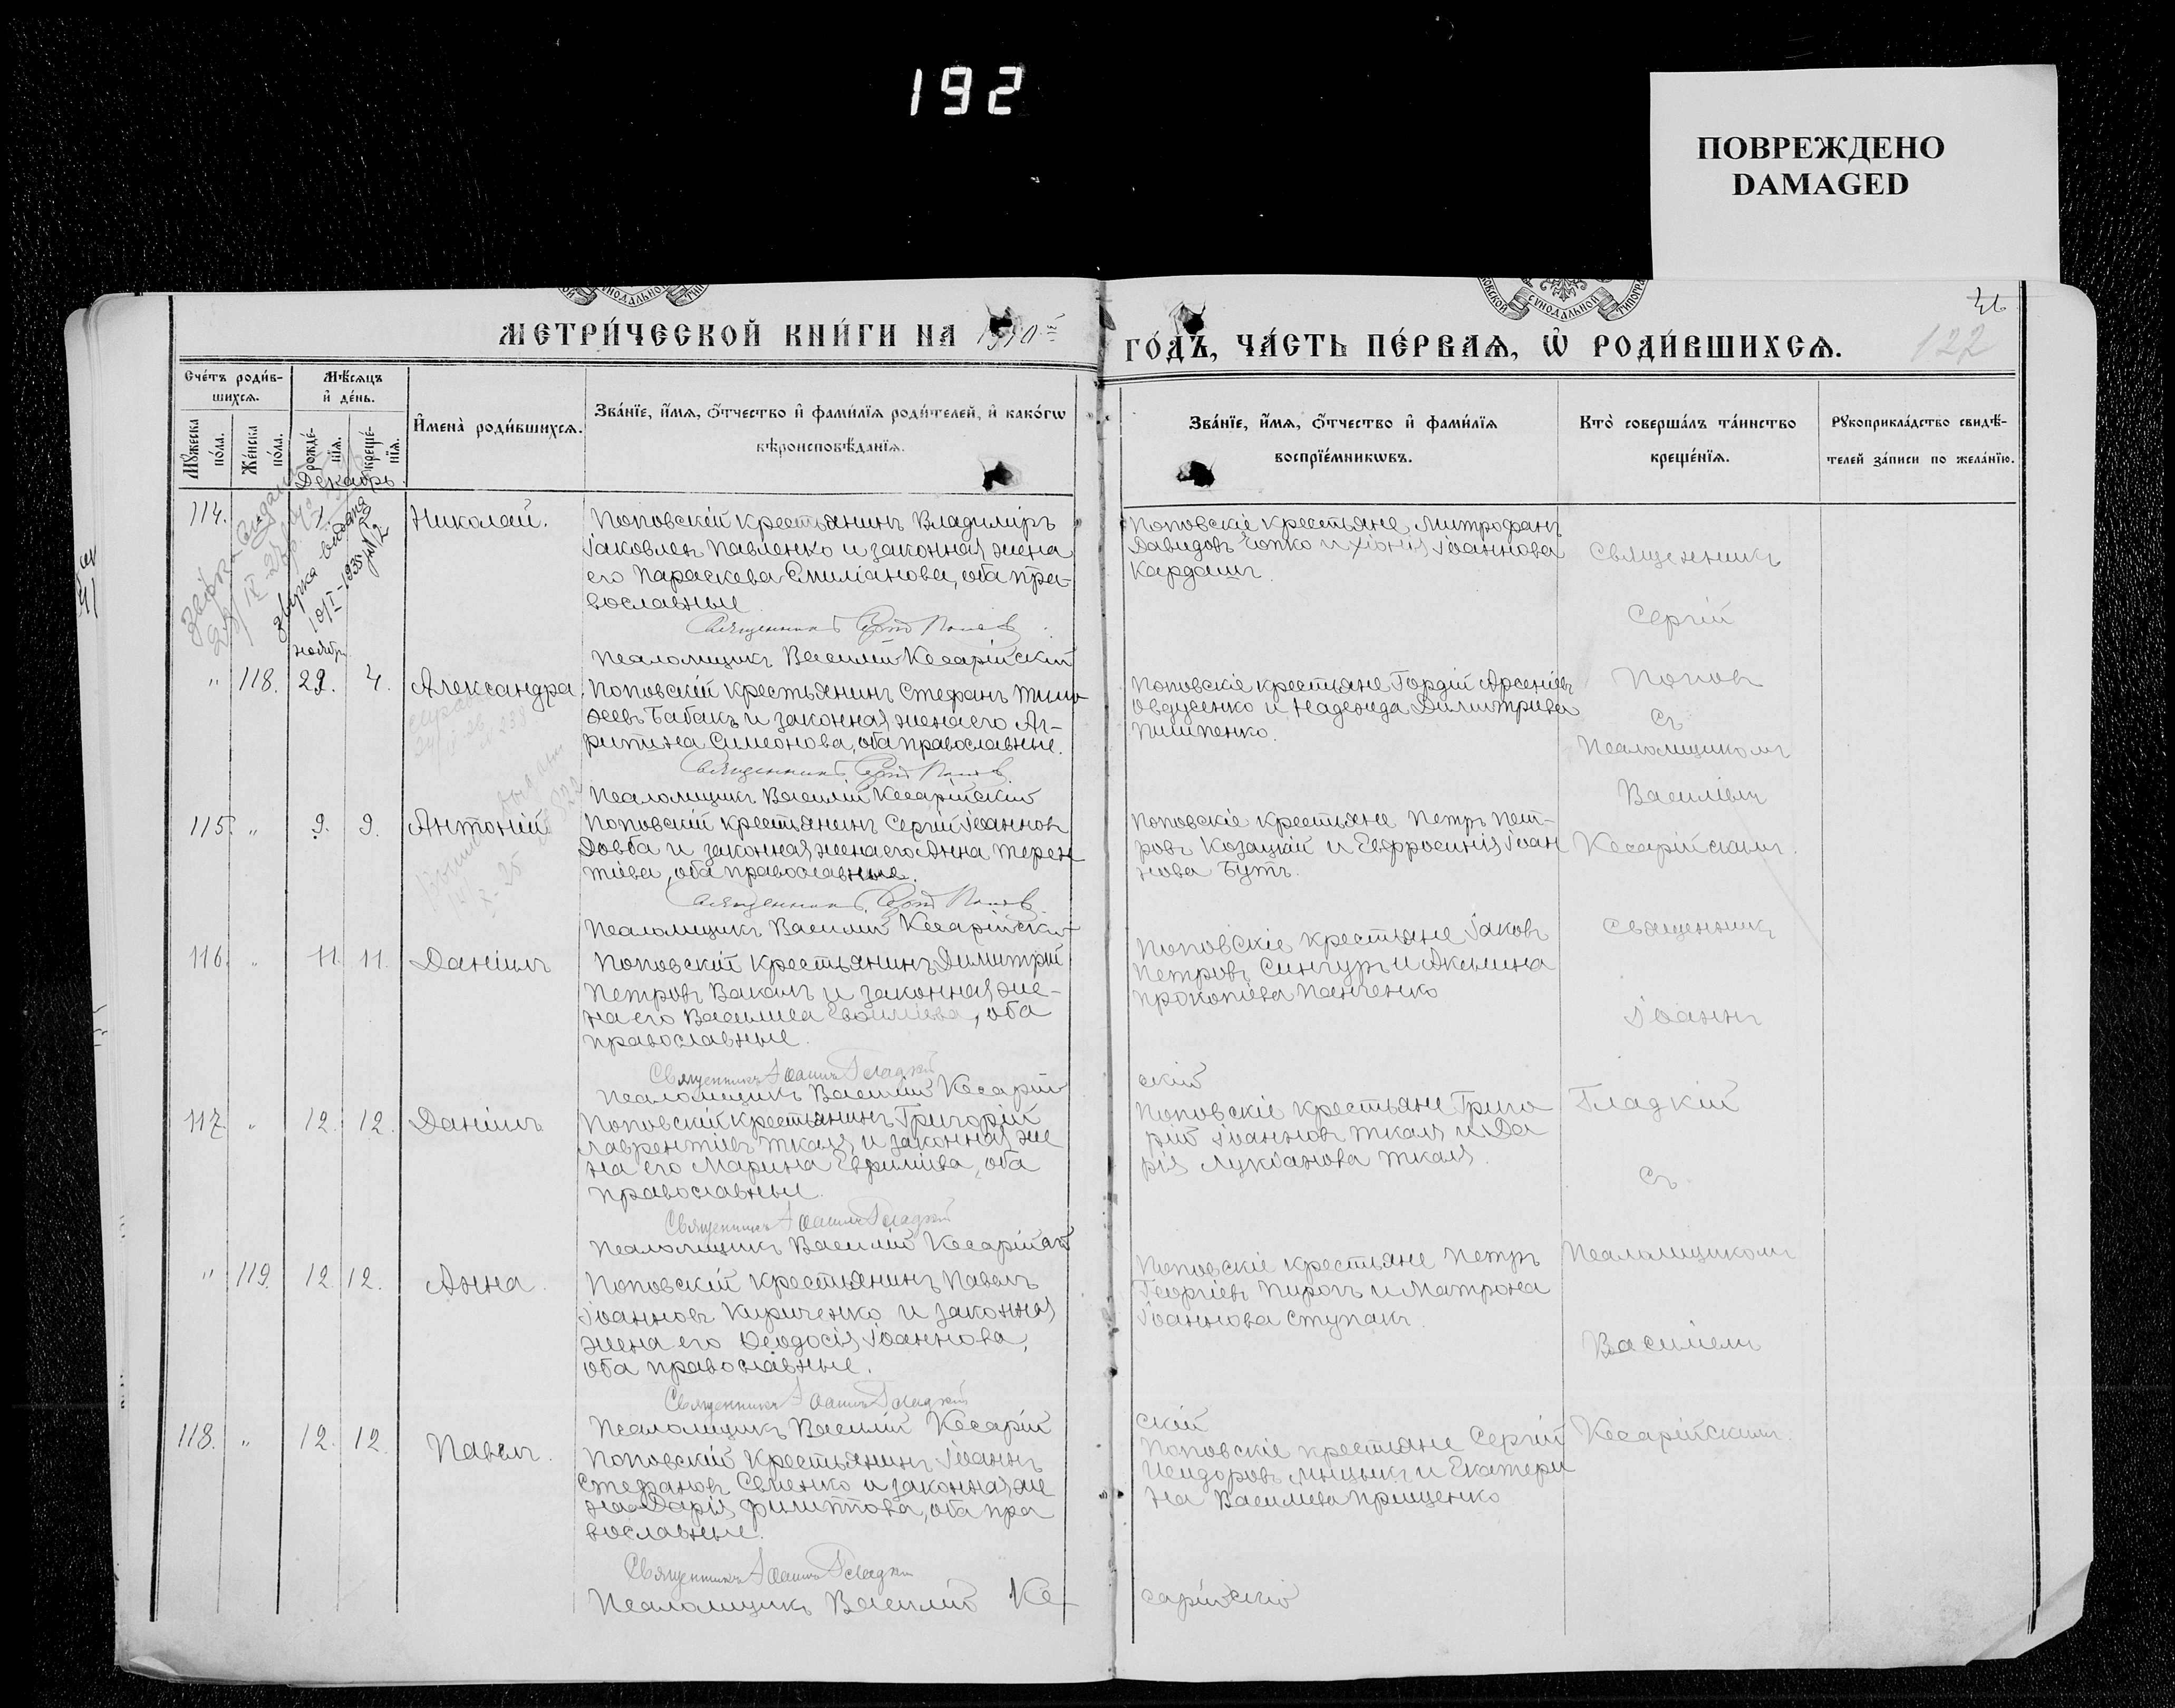 192
ПОВРЕЖДЕНО
DAMAGED
МЕТРИ́ЧЕСКОЙ КНИ́ГИ НА 1910й
ГО́ДЪ, ЧА́СТЬ ПЕ́РВАѦ, Ѡ҆ РОДИ́ВШИХСѦ.
122
Сче́тъ роди́в-
шихсѧ.
Мѣ́сѧцъ
и҆ де́нь.
Мꙋ́жеска
по́ла.
Же́нска
по́ла.
рожде́-
нїѧ.
креще́-
нїѧ.
И҆мена̀ роди́вшихсѧ.
Зва́нїе, и҆́мѧ, ѻ҆́тчество и҆ фами́лїѧ роди́телей, и҆ како́гѡ
вѣроисповѣ́данїѧ.
Зва́нїе, и҆́мѧ, ѻ҆́тчество и҆ фами́лїѧ
воспрїе́мникѡвъ.
Кто̀ соверша́лъ та́инство
креще́нїѧ.
Рꙋкоприкла́дство свидѣ́-
телей за́писи по жела́нїю.
Декабрь.
114. " 1. 2 Николай.
Поповскій крестьянинъ Владиміръ
Іаковлевъ Павленко и законная жена
его Параскева Емиліанова, оба пра-
вославные
Священникъ Сергій Поповъ
Псаломщикъ Василій Кесарійскій
Поповскіе крестьяне Митрофанъ
Давидовъ и Хіонія Іоаннова
Кардашъ.
ноябрь
" 118. 29. 4. Александра.
Поповскій крестьянинъ Стефанъ Тимо
ѳеевъ Бабакъ и законная жена его Аг-
рипина Симеонова, оба православные.
Священникъ Сергій Поповъ
Псаломщикъ Василій Кесарійскій
Поповскіе крестьяне Гордій Арсеніевъ
Овдусенко и Надежда Димитріева
Пилипенко.
115. " 9. 9. Антоній
Поповскій крестьянинъ Сергій Іоанновъ
Довба и законная жена его Анна Терен
тіева, оба православные.
Священникъ Сергій Поповъ
Псаломщикъ Василій Кесарійскій
Поповскіе крестьяне Петръ Пет-
ровъ Козацкій и Евфросинія Іоан
нова Бутъ.
Священникъ
Сергій
Поповъ
съ
Псаломщикомъ
Василіемъ
Кесарійскимъ.
116. " 11. 11. Даніилъ
Поповскій крестьянинъ Димитрій
Петровъ Вакалъ и законная же-
на его Василиса, оба
православные.
Священникъ Іоаннъ Гладкій
Псаломщикъ Василій Кесарій
скій
Поповскіе крестьяне Іаковъ
Петровъ Сингуръ и Акилина
Прокопіева Панченко
117. " 12. 12. Даніилъ
Поповскій крестьянинъ Григорій
Лаврентіевъ Ткаля и законная же
на его Марина Евфиміева, оба
православные.
Священникъ Іоаннъ Гладкій
Псаломщикъ Василій Кесарійскій
Поповскіе крестьяне Григо
рій Іоанновъ Ткаля и Да
рія Лукіанова Ткаля.
" 119. 12. 12. Анна.
Поповскій крестьянинъ Павелъ
Іоанновъ Кириченко и законная
жена его Ѳеодосія Іоаннова,
оба православные.
Священникъ Іоаннъ Гладкій
Псаломщикъ Василій Кесарій
скій
Поповскіе крестьяне Петръ
Георгіевъ Пирогъ и Матрона
Іоаннова Ступакъ.
118. " 12. 12. Павелъ.
Поповскій крестьянинъ Іоаннъ
Стефановъ Семенко и законная же
на Дарія Филиппова, оба пра
вославные.
Священникъ Іоаннъ Гладкій
Псаломщикъ Василій Ке-
сарійскій
Поповскіе крестьяне Сергій
Исидоровъ и Екатери
на Василіева Прищенко
Священникъ
Іоаннъ
Гладкій
съ
Псаломщикомъ
Василіемъ
Кесарійскимъ.